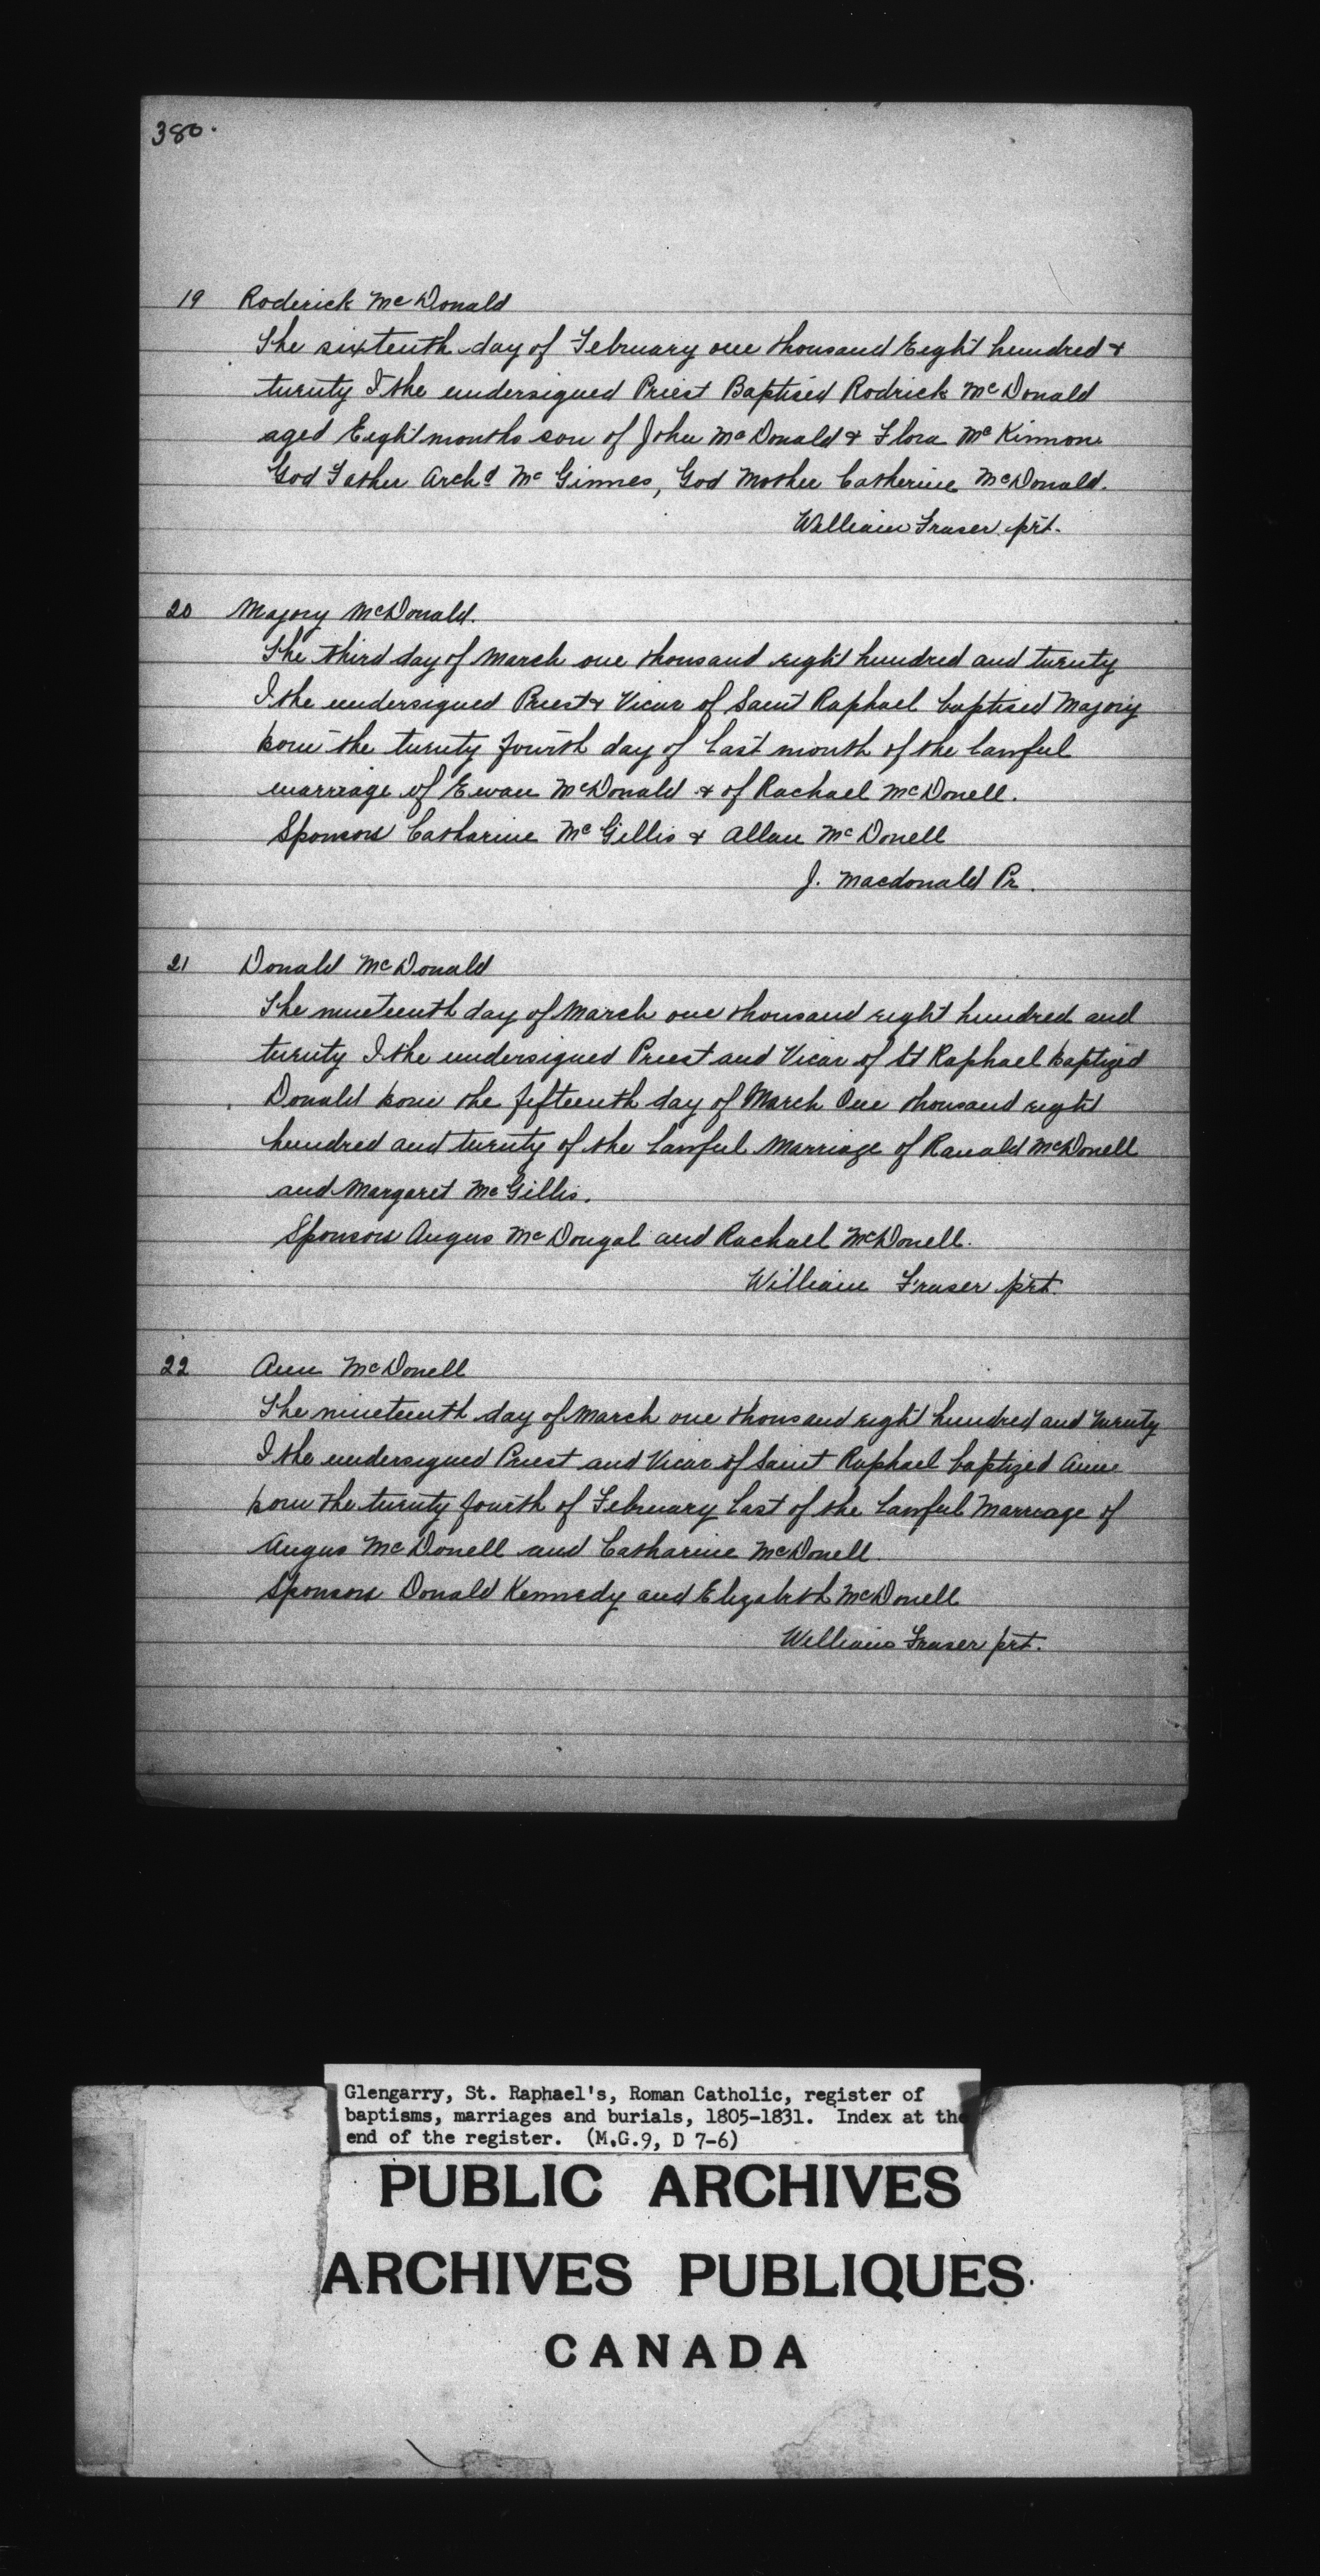 380.
19 Roderick McDonald
The sixteenth day of February one thousand Eight hundred &
twenty I the undersigned Priest Baptised Rodrick McDonald
aged Eight months son of John McDonald & Flora McKinnon
God Father Archd McGinnes, God Mother Catherine McDonald.
William Fraser prt.
20 Majory McDonald.
The third day of March one thousand eight hundred and twenty
I the undersigned Priest & Vicar of Saint Raphael baptised Majory
born the twenty fourth day of last month of the lawful
marriage of Ewan McDonald & of Rachael McDonell.
Sponsors Catharine McGillis & Allan McDonell
J. Macdonald Pr.
21 Donald McDonald
The nineteenth day of March one thousand eight hundred and
twenty I the undersigned Priest and Vicar of St Raphael baptized
Donald born the fifteenth day of March One thousand eight
hundred and twenty of the lawful Marriage of Ranald McDonell
and Margaret McGillis.
Sponsors Angus McDougal and Rachael McDonell.
William Fraser prt.
22 Ann McDonell
The nineteenth day of March one thousand eight hundred and twenty
I the undersigned Priest and Vicar of Saint Raphael baptized Anne
born the twenty fourth of February last of the lawful Marriage of
Angus McDonell and Catharine McDonell.
Sponsors Donald Kennedy and Elizabeth McDonell
William Fraser prt.
Glengarry, St. Raphael's, Roman Catholic, register of
baptisms, marriages and burials, 1805-1831. Index at the
end of the register. (M.G.9, D 7-6)
PUBLIC ARCHIVES
ARCHIVES PUBLIQUES
CANADA